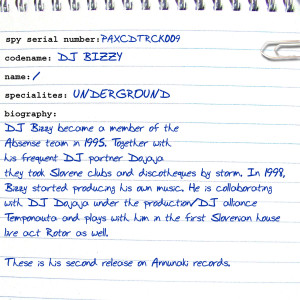 spy serial number:PAXCDTRCK009
codename: DJ BIZZY
name: /
specialites: UNDERGROUND
biography:
DJ Bizzy became a member of the
Absense team in 1995. Together with
his frequent DJ partner Dojaja
they took Slovene clubs and discotheques by storm. In 1998,
Bizzy started producing his own music. He is collaborating
with DJ Dojaja under the production/DJ alliance
Temponauta and plays with him in the first Slovenian house
live act Rotor as well.
These is his second release on Annunaki records.